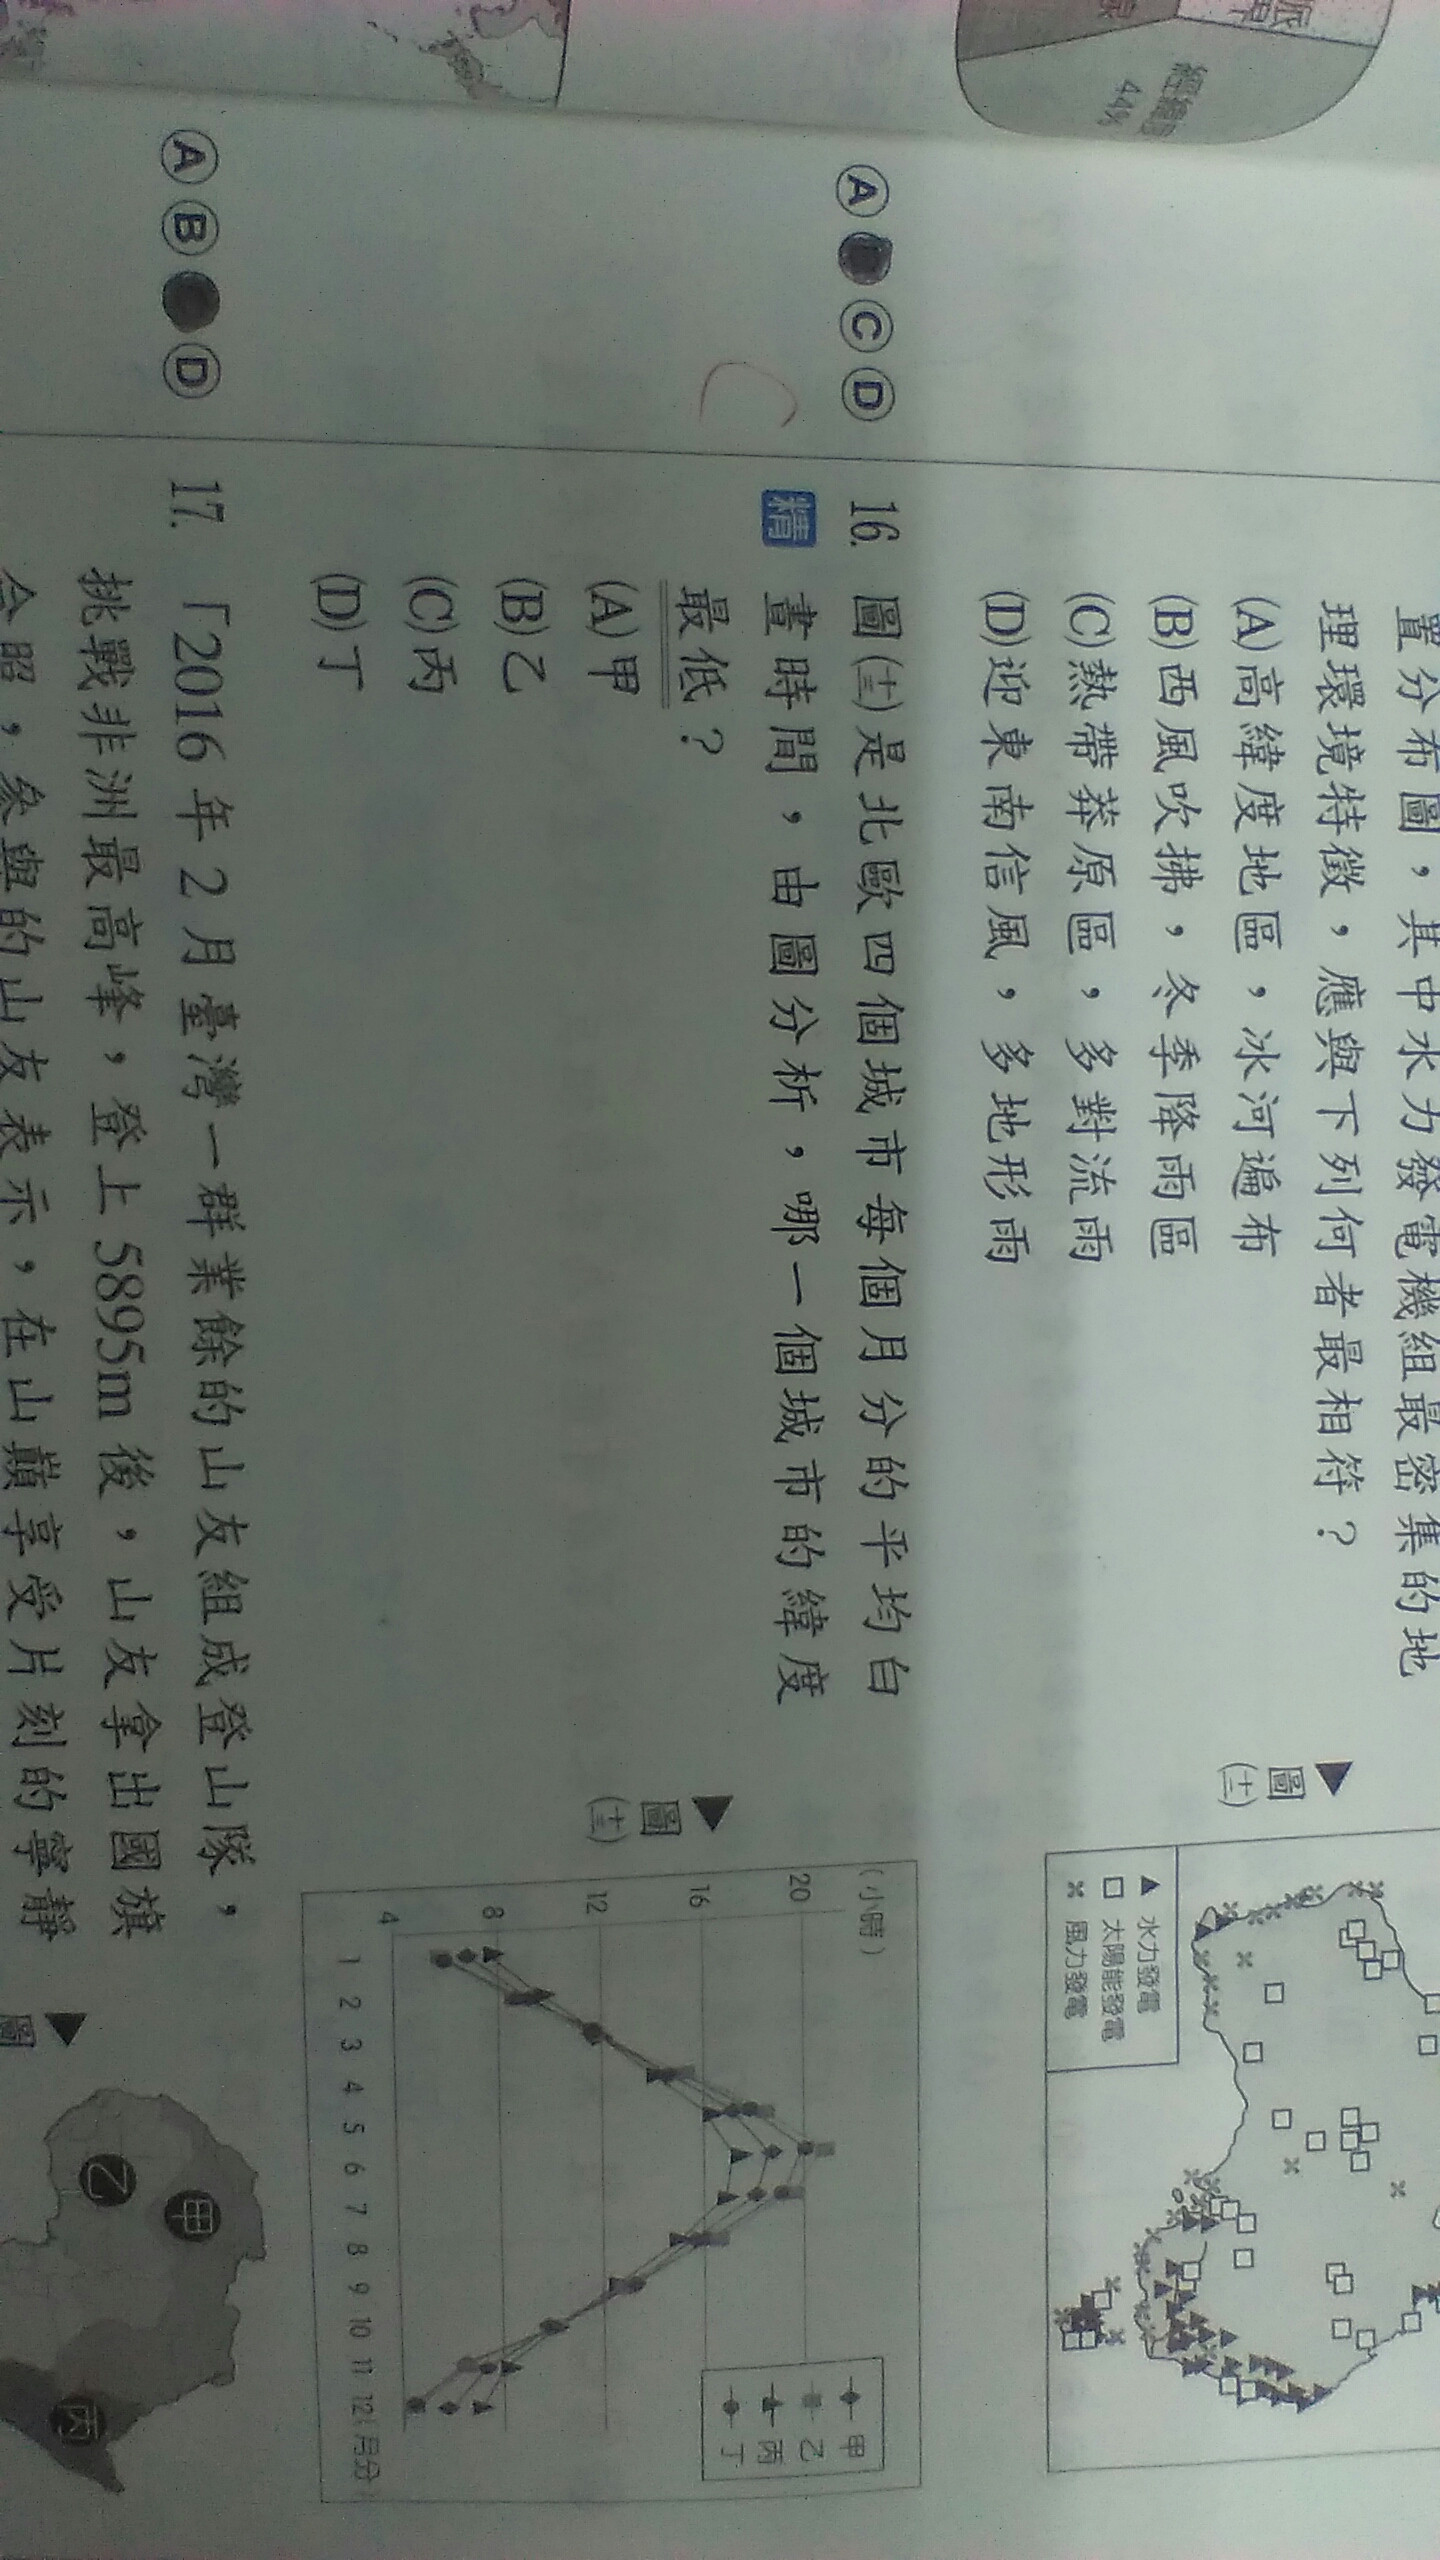 44%
置分布圖，其中水力發電機組最密集的地
理環境特徵，應與下列何者最相符？
(A)高緯度地區，冰河遍布
(B)西風吹拂，冬季降雨區
(C)熱帶莽原區，多對流雨
(D)迎東南信風，多地形雨
▲圖(十二)
▲ 水力發電
□ 太陽能發電
× 風力發電
Ⓐ Ⓒ Ⓓ
C
16. 圖(十三)是北歐四個城市每個月分的平均白
精 晝時間，由圖分析，哪一個城市的緯度
最低？
(A)甲
(B)乙
(C)丙
(D)丁
▲圖(十三)
(小時)
20
16
12
8
4
1 2 3 4 5 6 7 8 9 10 11 12(月分)
甲
乙
丙
丁
Ⓐ Ⓑ Ⓓ
17. 「2016 年 2 月臺灣一群業餘的山友組成登山隊，
挑戰非洲最高峰，登上 5895m 後，山友拿出國旗
合照，參與的山友表示，在山巔享受片刻的寧靜
▲圖
甲
乙
丙